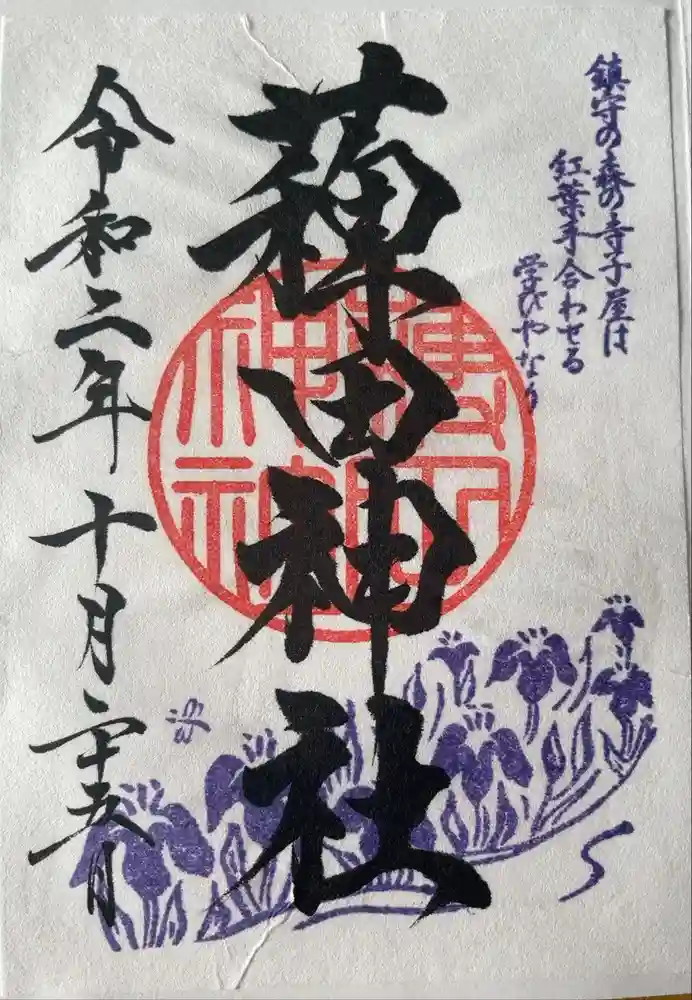 鎮守の森の寺子屋は
紅葉手合わせる
学びやなり
薭田神社
令和二年十月二十五日